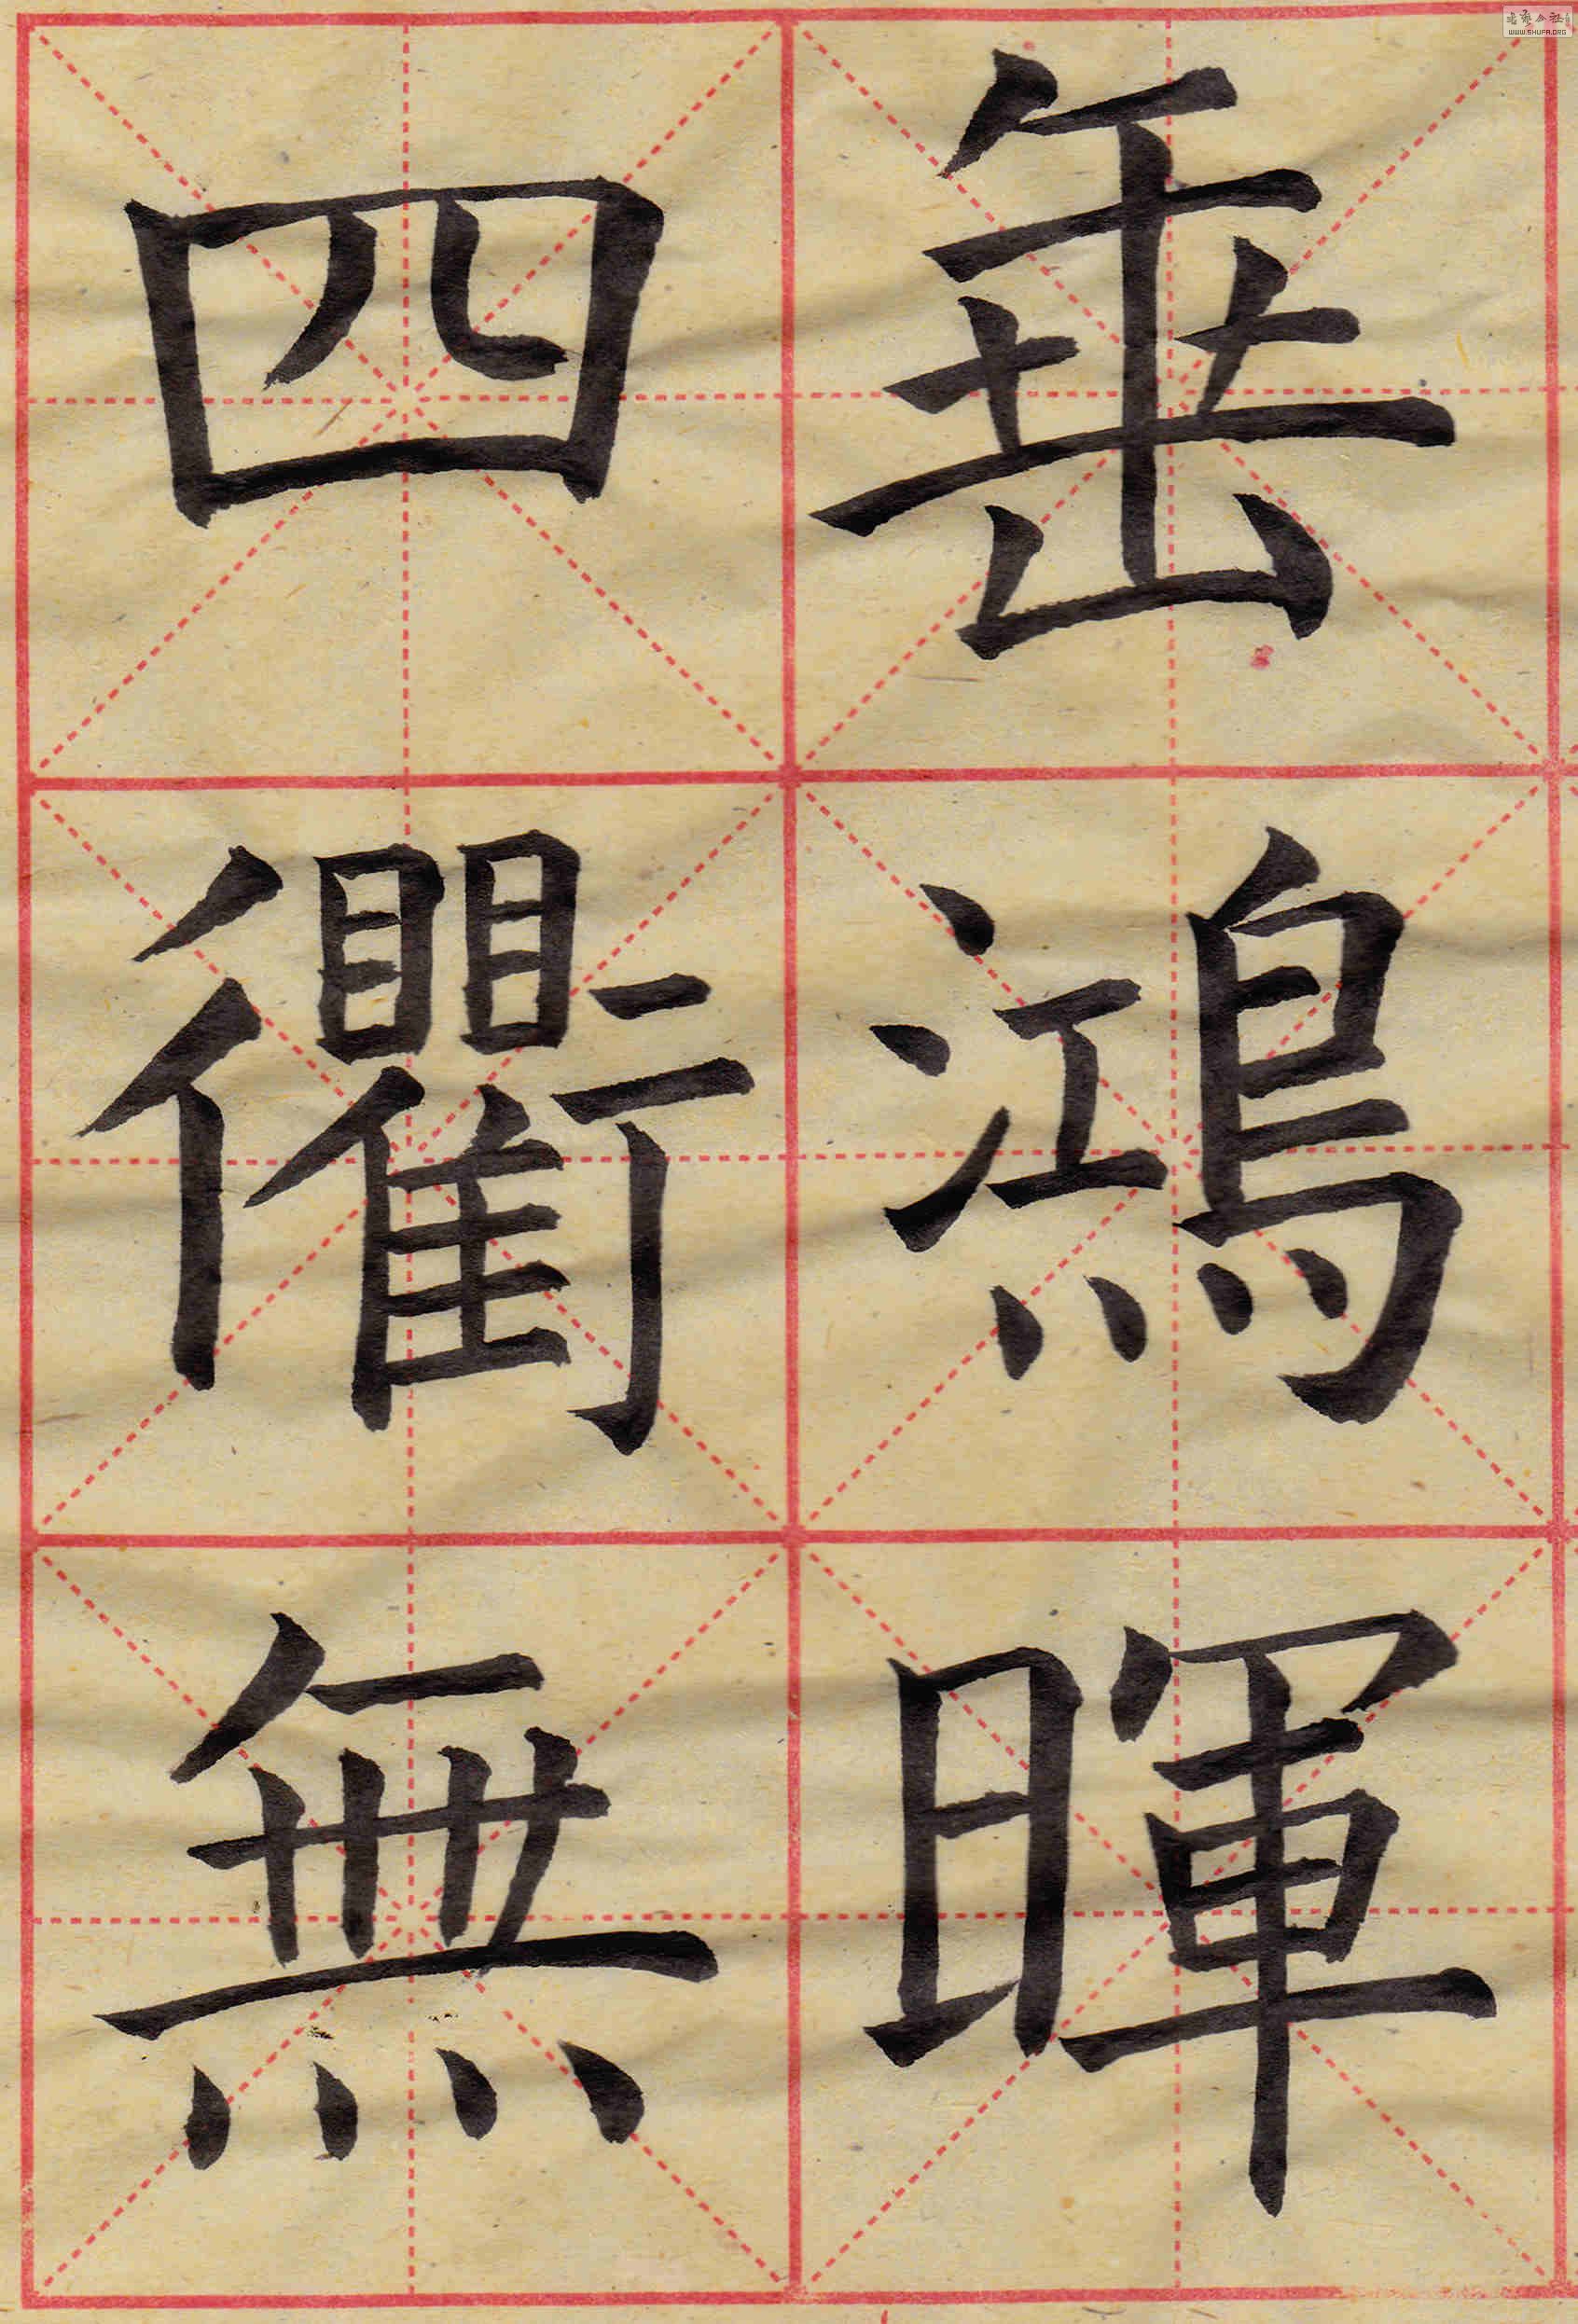 垂鴻暉
四衢無
书艺公社
WWW.SHUFA.ORG